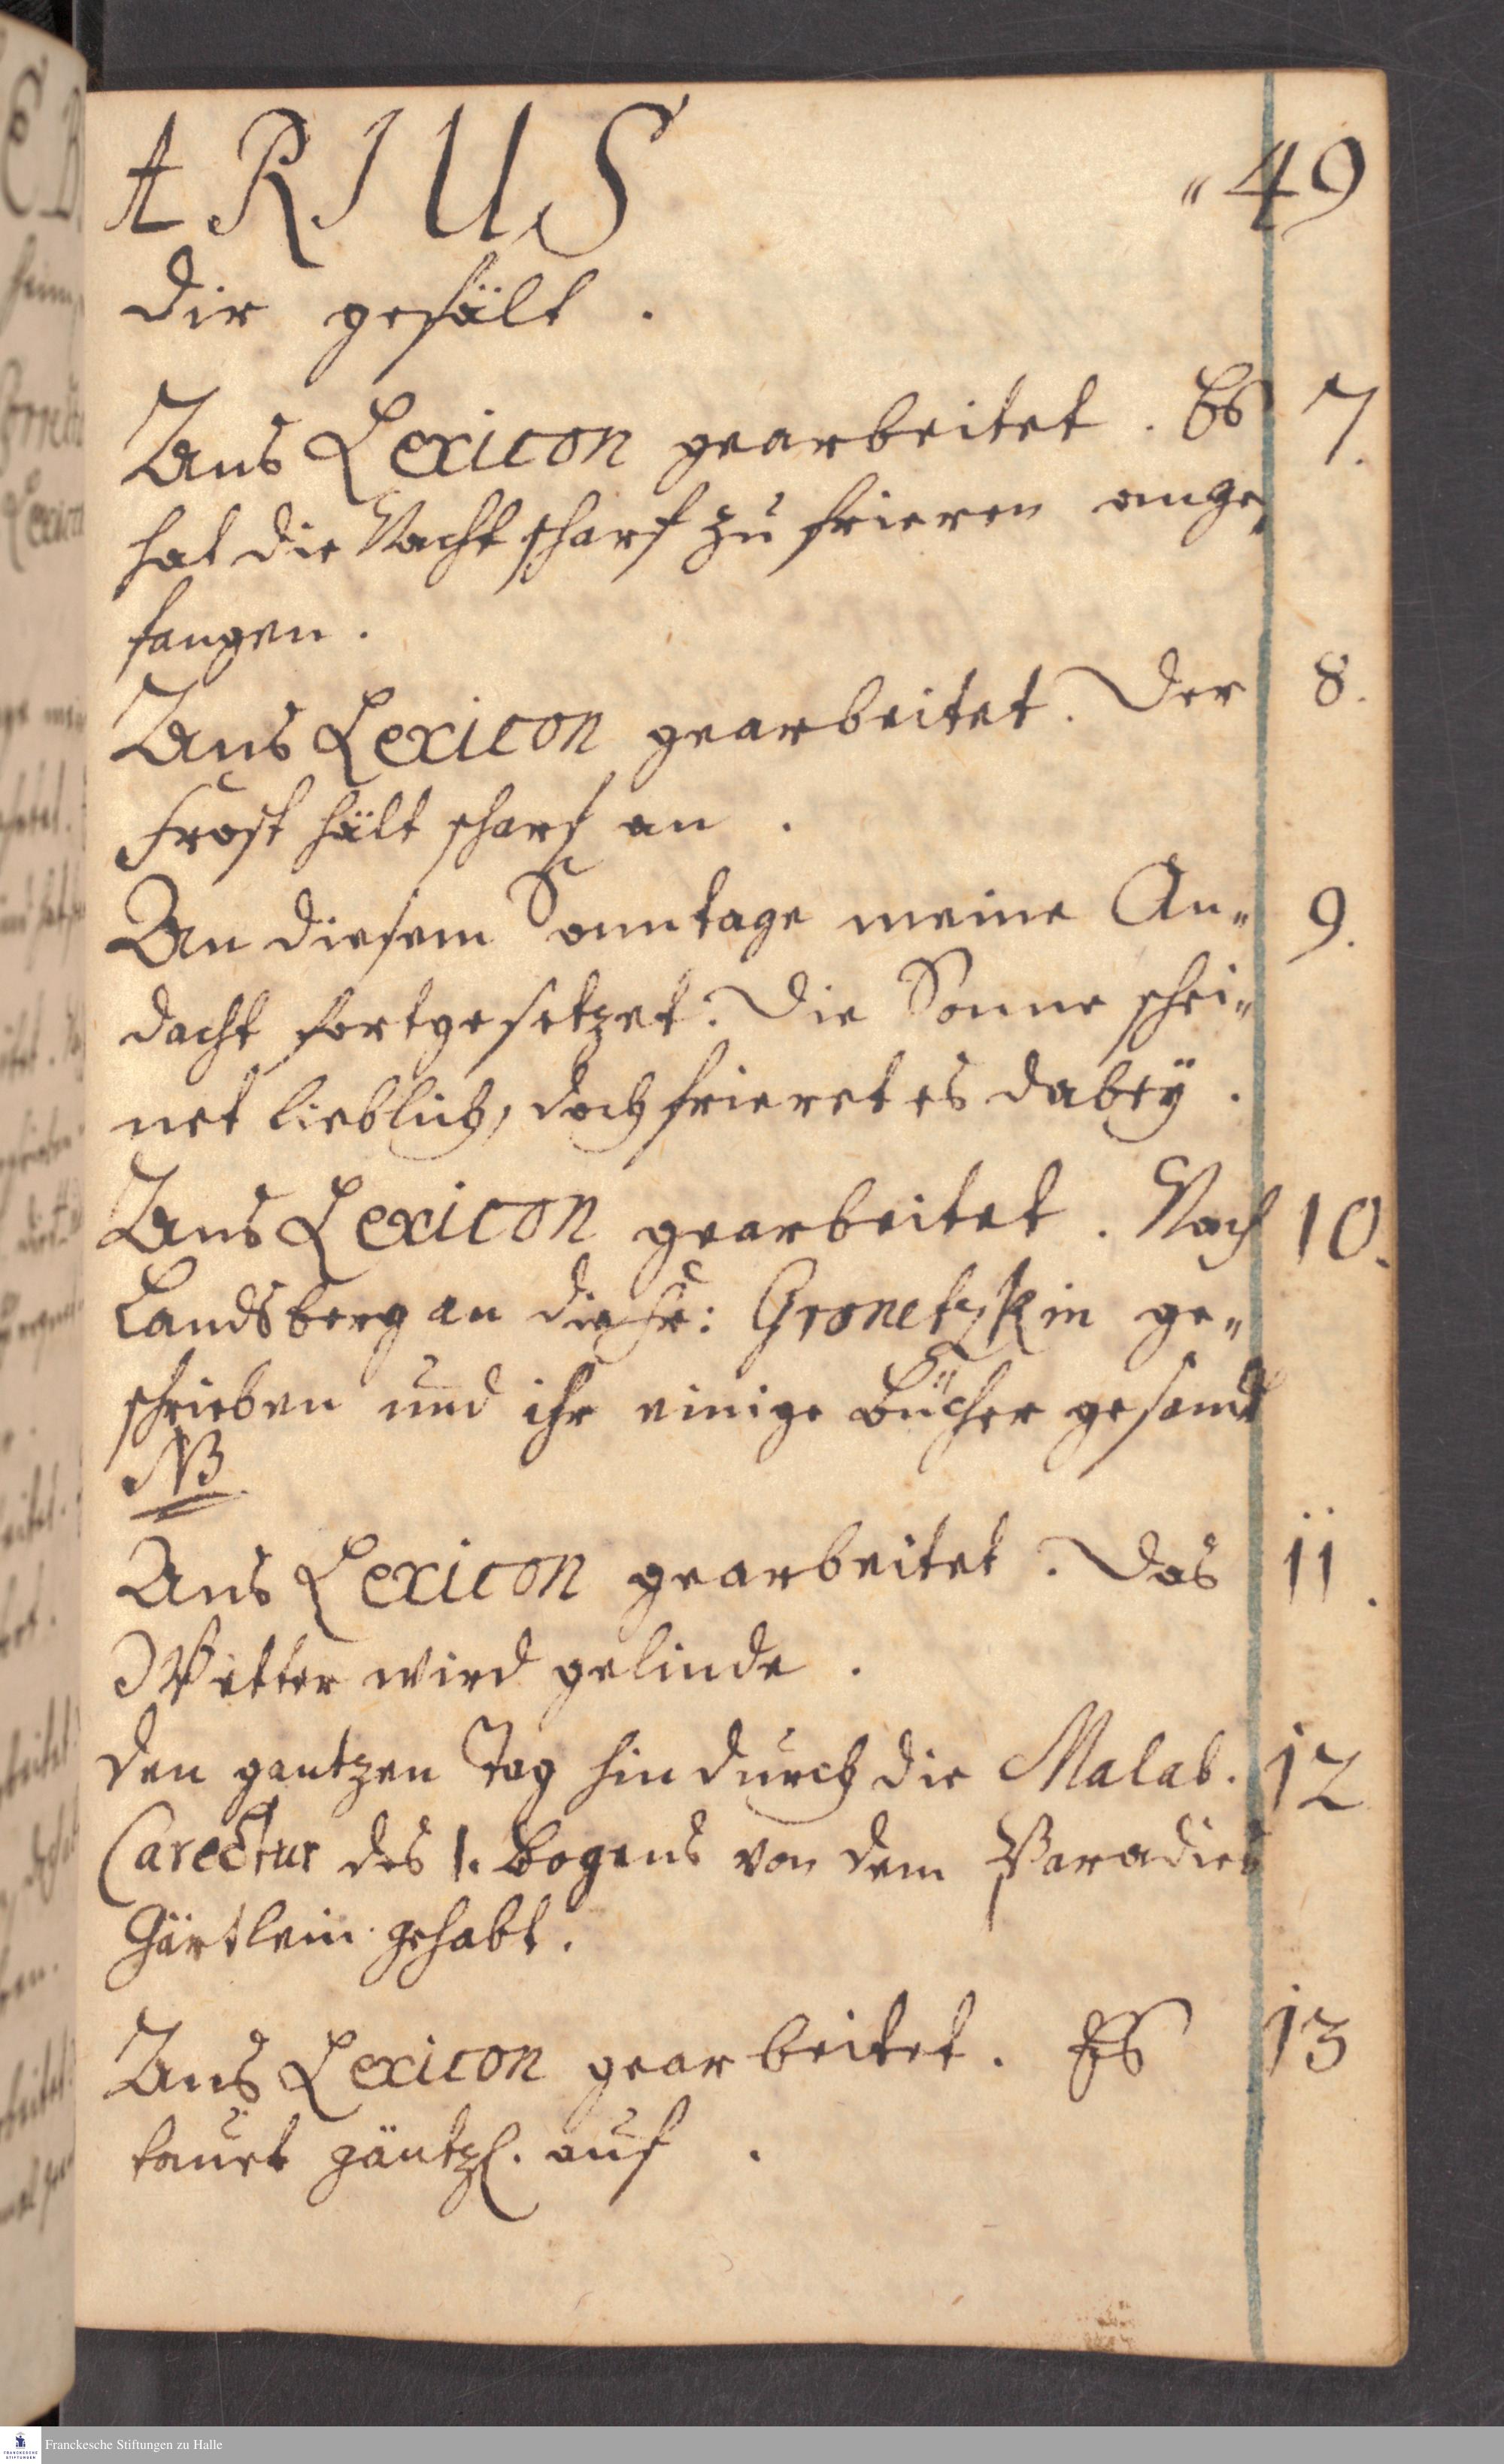 ARIUS „49
dir gefält.
Ans Lexicon gearbeitet. Es 7.
hat die Nacht scharf zu frieren ange„
fangen.
Ans Lexicon gearbeitet. Der 8.
Frost hält scharf an.
An diesem Sonntage meine An„ 9.
dacht fortgesetzet. Die Sonne schei„
net lieblich, doch frieret es dabeÿ.
Ans Lexicon gearbeitet. Nach 10.
Landsberg an die Fr: Gronetzkin ge„
schrieben und ihr einige Bücher gesandt
NB
Ans Lexicon gearbeitet. Das 11.
Wetter wird gelinde.
Den gantzen Tag hindurch die Malab. 12
Carectur des 1. Bogens von dem Paradies
Gärtlein gehabt.
Ans Lexicon gearbeitet. Es 13
tauet gäntzl. auf.
Franckesche Stiftungen zu Halle